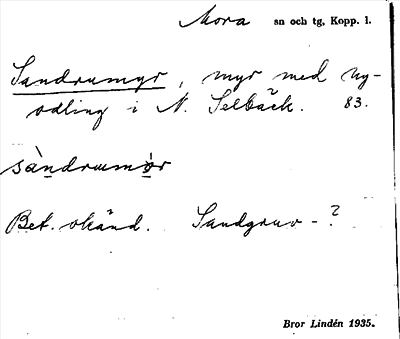 Mora sn och tg, Kopp. l.
Sandrumyr, myr med ny-
odling i N. Selbäck. 83.
sàndrumò̠r
Bet. okänd. Sandgruv-?
Bror Lindén 1935.